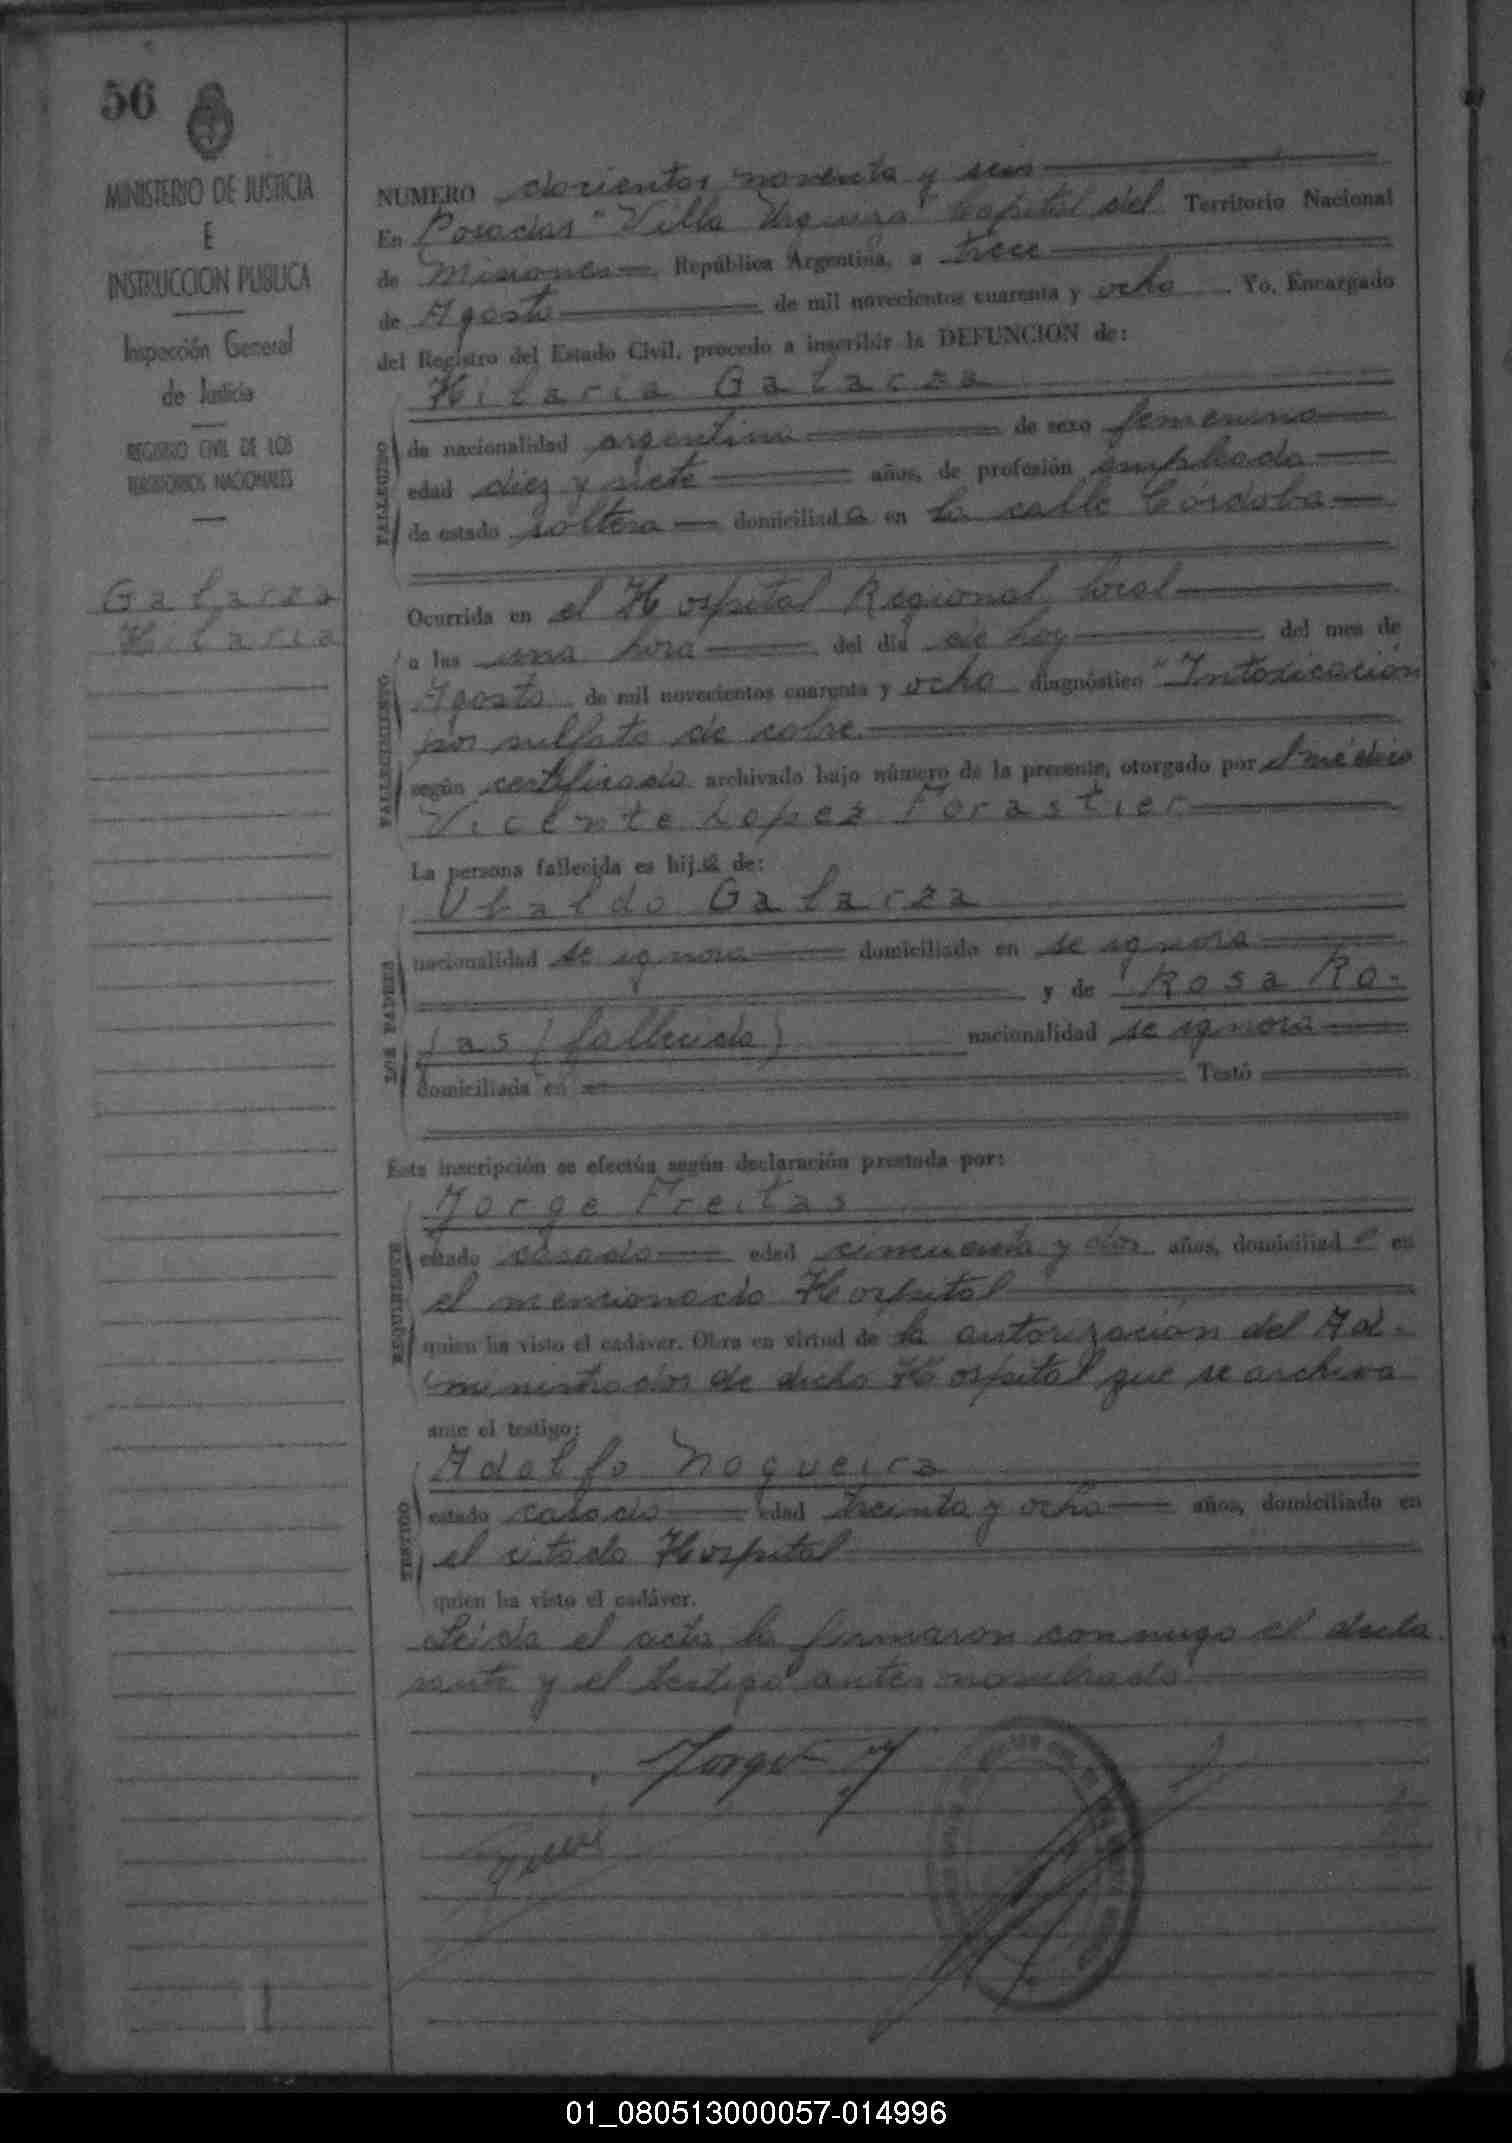 56
MINISTERIO DE JUSTICIA
E
INSTRUCCION PUBLICA
Inspección General
de Justicia
REGISTRO CIVIL DE LOS
TERRITORIOS NACIONALES
Galarza
Hilaria
NUMERO doscientos noventa y seis
En Posadas "Villa Urquiza" Capital del Territorio Nacional
de Misiones República Argentina, a trece
de Agosto de mil novecientos cuarenta y ocho. Yo, Encargado
del Registro del Estado Civil, procedo a inscribir la DEFUNCION de:
Hilaria Galarza
FALLECIDO
de nacionalidad argentina de sexo femenino
edad diez y siete años, de profesión empleada
de estado soltera domiciliada en la calle Córdoba
FALLECIMIENTO
Ocurrida en el Hospital Regional local
a las una hora del día de hoy del mes de
Agosto de mil novecientos cuarenta y ocho diagnóstico "Intoxicación
por sulfato de cobre
según certificado archivado bajo número de la presente, otorgado por el médico
Vicente Lopez Forastier
La persona fallecida es hija de:
LOS PADRES
Ubaldo Galarza
nacionalidad se ignora domiciliado en se ignora
y de Rosa Ro-
jas (fallecida) nacionalidad se ignora
domiciliada en Testó
Esta inscripción se efectúa según declaración prestada por:
REQUIRENTE
Jorge Freitas
estado casado edad cincuenta y dos años, domiciliado en
el mencionado Hospital
quien ha visto el cadáver. Obra en virtud de la autorización del Ad-
ministrador de dicho Hospital que se archiva
ante el testigo:
TESTIGO
Adolfo Nogueira
estado casado edad treinta y ocho años, domiciliado en
el citado Hospital
quien ha visto el cadáver.
Leida el acta la firmaron conmigo el decla
rante y el testigo antes nombrado
Jorge F
01_080513000057-014996